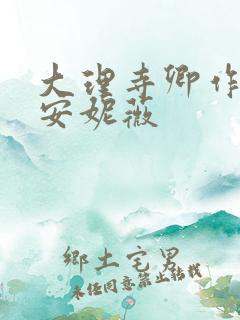 大理寺卿作
安妮薇
鄉土宅男
未经同意禁止转载